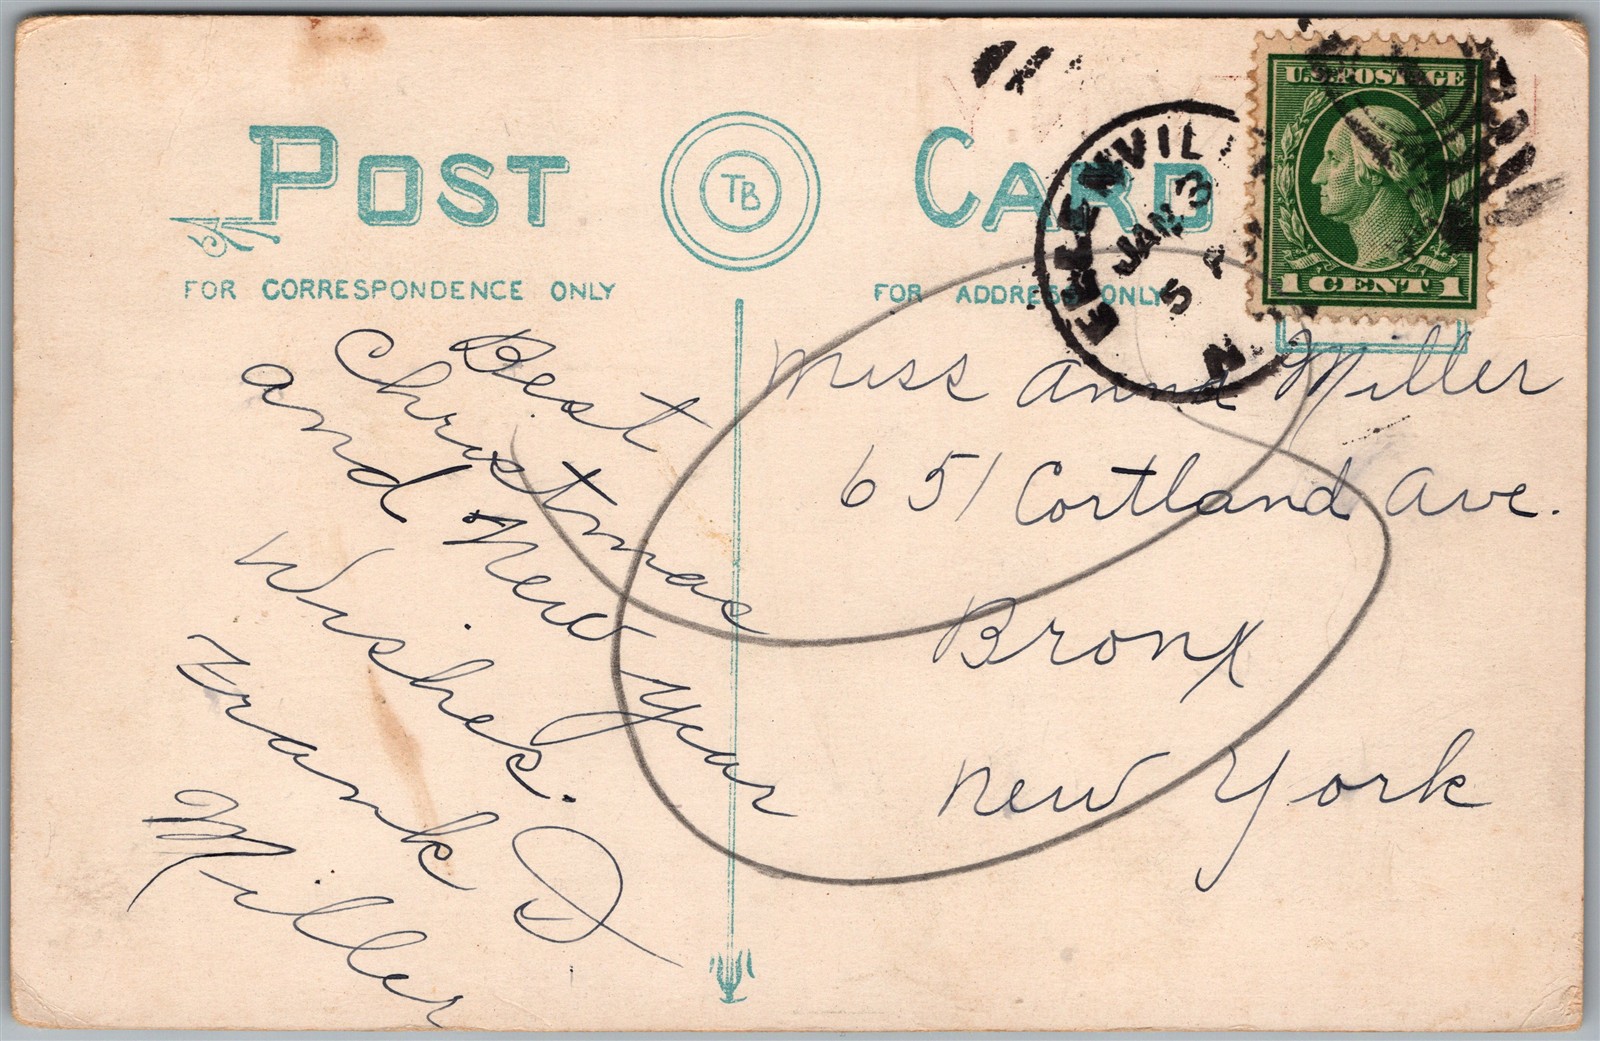 POST CARD
TB
FOR CORRESPONDENCE ONLY
FOR ADDRESS ONLY
U.S. POSTAGE
1 CENT 1
JAN 3
5
N
Best
Christmas
and New Year
Wishes.
Frank D
Miller
Miss Anna Miller
651 Cortland Ave.
Bronx
New York